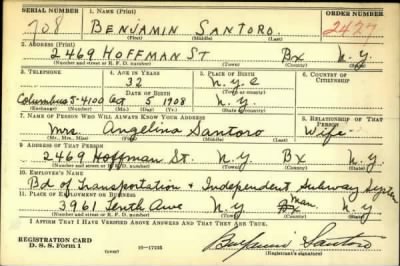 SERIAL NUMBER 1. NAME (Print) ORDER NUMBER
708 BENJAMIN SANTORO. 2427
(First) (Middle) (Last)
2. ADDRESS (Print)
2469 HOFFMAN ST Bx N.Y.
(Number and street or R. F. D. number) (Town) (County) (State)
3. TELEPHONE 4. AGE IN YEARS 5. PLACE OF BIRTH 6. COUNTRY OF CITIZENSHIP
32 N.Y.C
DATE OF BIRTH (Town or county)
Columbus 5-4100 Oct 5 1908 N.Y.
(Exchange) (Number) (Mo.) (Day) (Yr.) (State or country)
7. NAME OF PERSON WHO WILL ALWAYS KNOW YOUR ADDRESS 8. RELATIONSHIP OF THAT PERSON
Mrs. Angelina Santoro Wife
(Mr., Mrs., Miss) (First) (Middle) (Last)
9. ADDRESS OF THAT PERSON
2469 Hoffman St. N.Y. Bx N.Y
(Number and street or R. F. D. number) (Town) (County) (State)
10. EMPLOYER'S NAME
Bd of Transportation + Independent Subway System
11. PLACE OF EMPLOYMENT OR BUSINESS
3961 Tenth Ave N.Y Man N.Y
(Number and street or R. F. D. number) (Town) (County) (State)
I AFFIRM THAT I HAVE VERIFIED ABOVE ANSWERS AND THAT THEY ARE TRUE.
REGISTRATION CARD
D. S. S. Form 1 16-17105 Benjamin Santoro
(Registrant's signature)